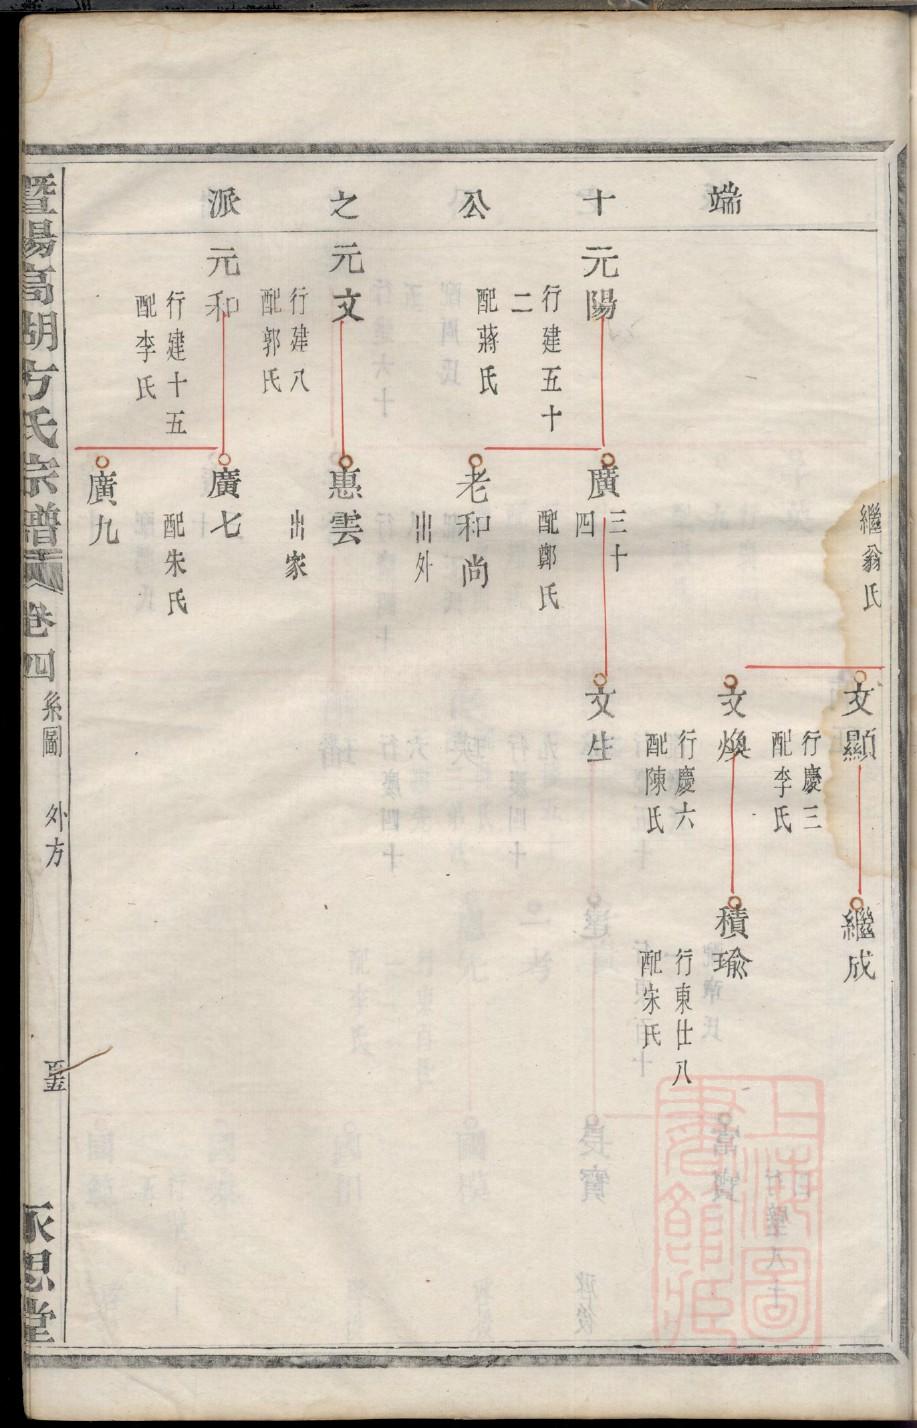 端十公之派
繼翁氏
文顯
行慶三
配李氏
繼成
文煥
行慶六
配陳氏
積瑜
行東仕八
配宋氏
元陽
行建五十
二
配蔣氏
廣四
三十
配鄭氏
文生
老和尚
出外
元文
行建八
配郭氏
惠雲
出家
元和
行建十五
配李氏
廣七
配朱氏
廣九
暨陽高湖方氏宗譜
卷四
系圖 外方
永思堂
上海圖書館藏